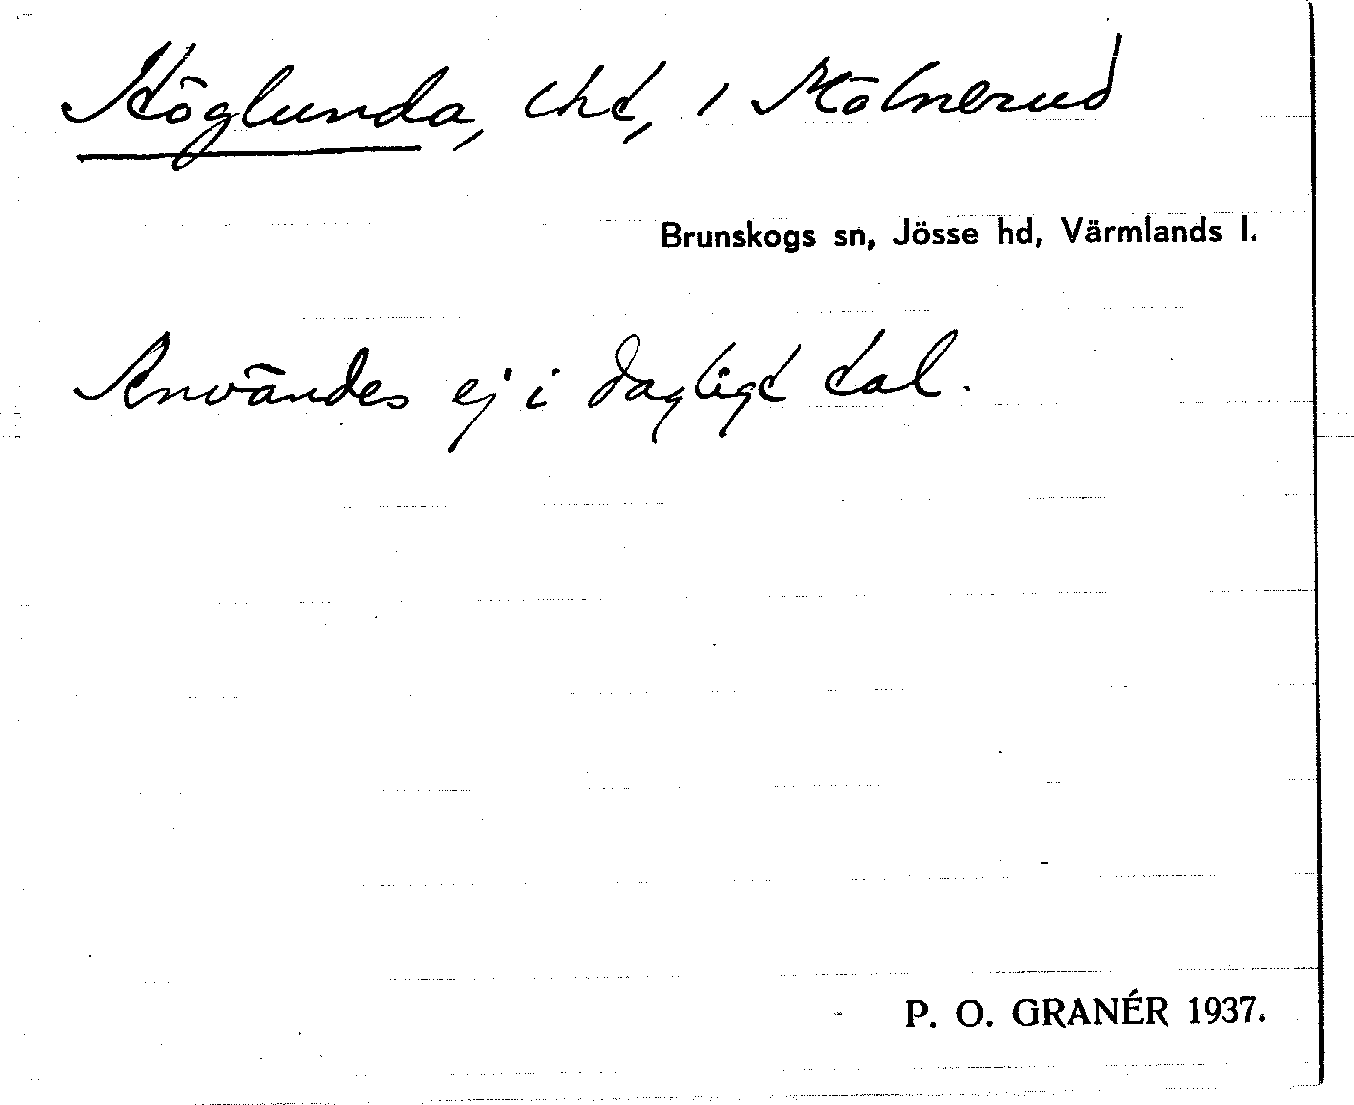 Höglunda, lht, i Mölnerud
Brunskogs sn, Jösse hd, Värmlands l.
Användes ej i dagligt tal.
P. O. GRANÉR 1937.